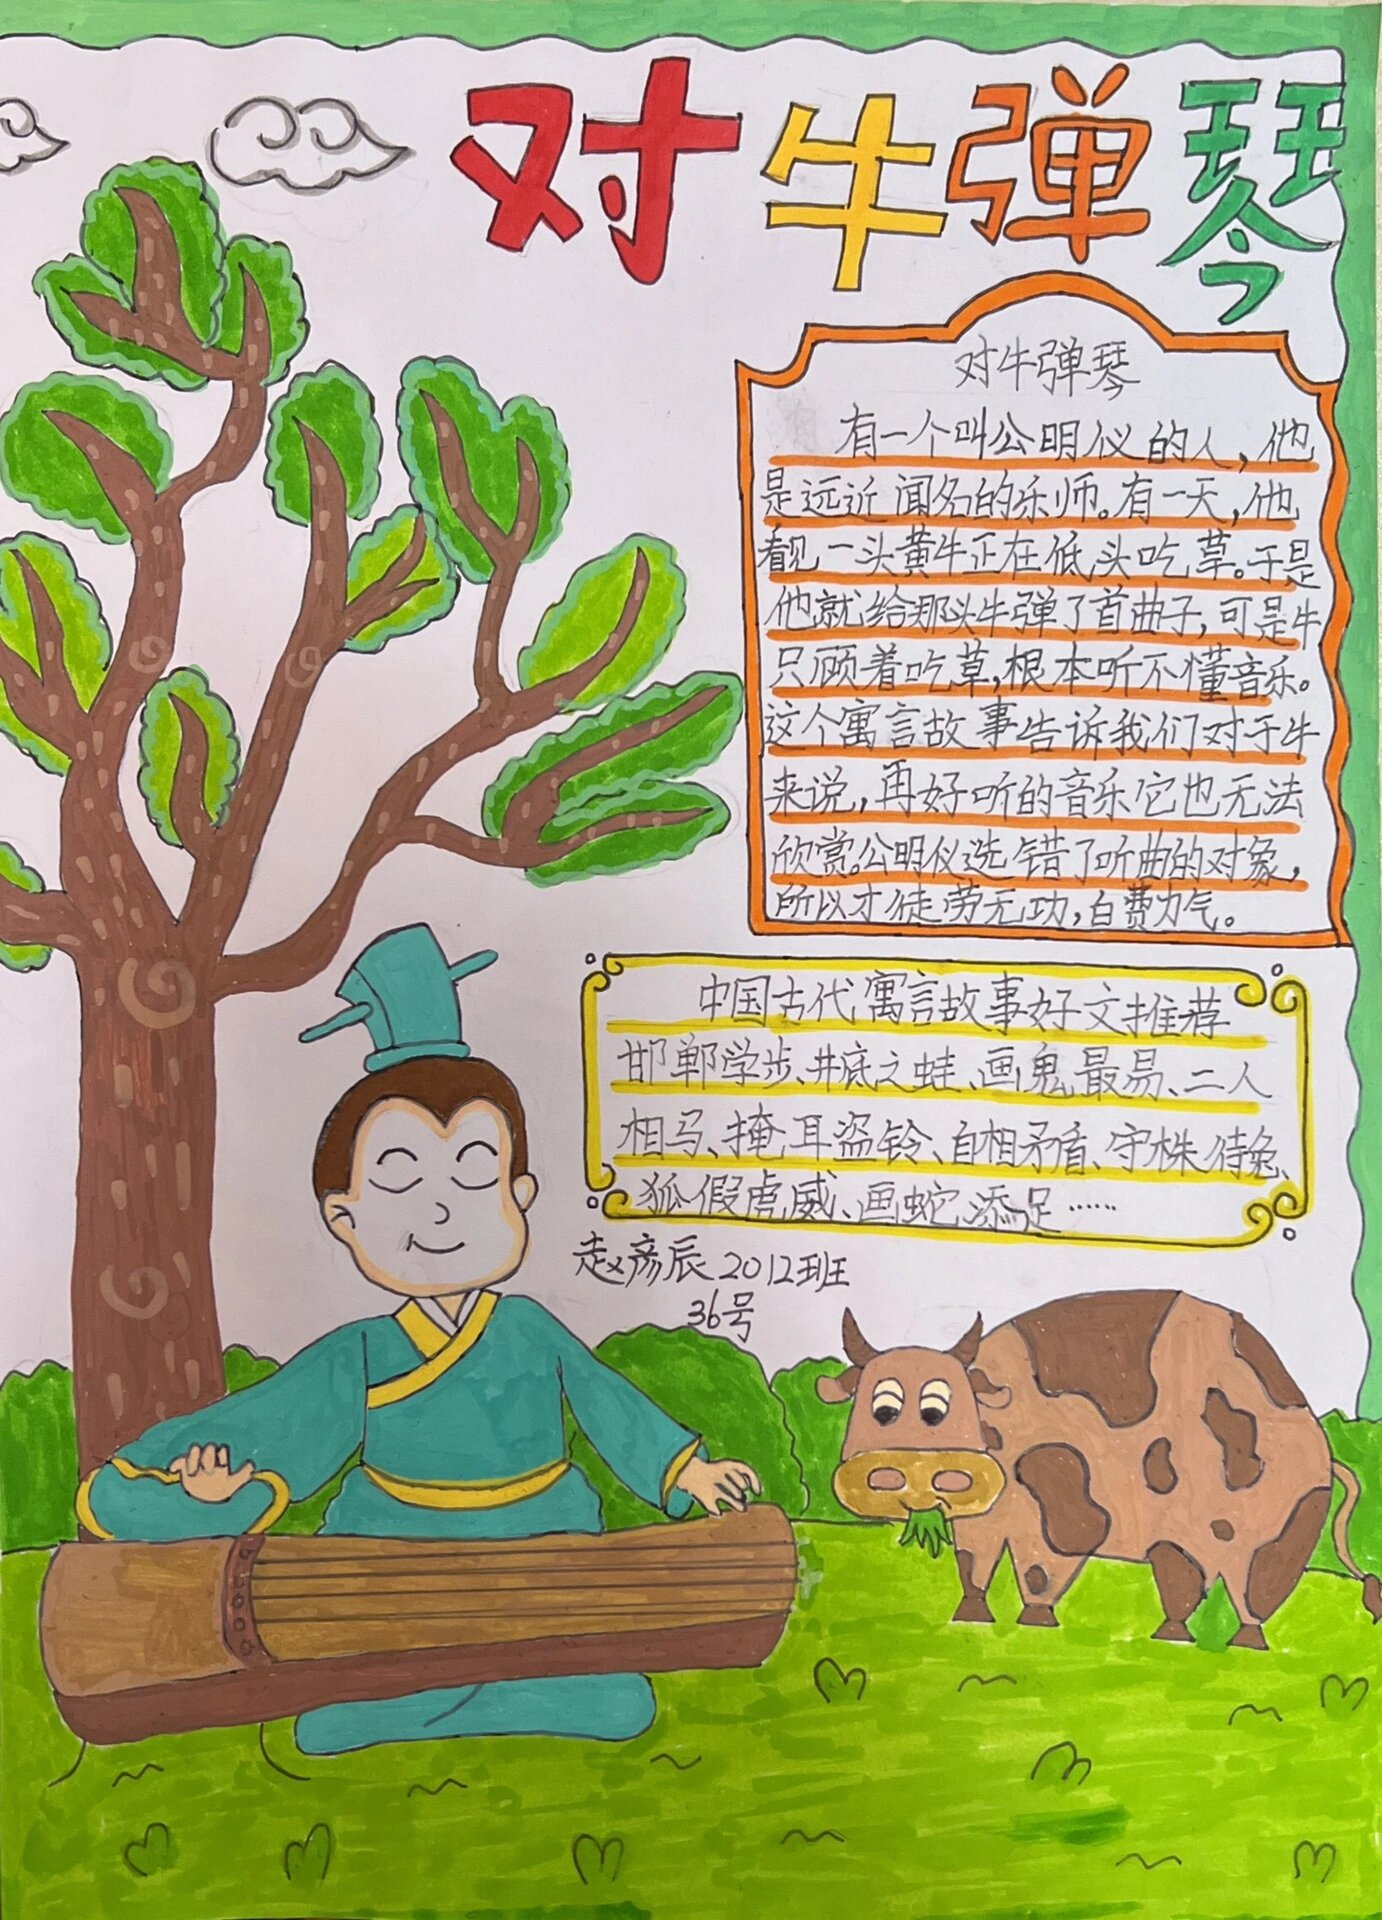 对牛弹琴
对牛弹琴
有一个叫公明仪的人，他
是远近闻名的乐师。有一天，他
看见一头黄牛正在低头吃草。于是
他就给那头牛弹了首曲子，可是牛
只顾着吃草，根本听不懂音乐。
这个寓言故事告诉我们对于牛
来说，再好听的音乐它也无法
欣赏。公明仪选错了听曲的对象，
所以才徒劳无功，白费力气。
中国古代寓言故事好文推荐
邯郸学步、井底之蛙、画鬼最易、二人
相马、掩耳盗铃、自相矛盾、守株待兔、
狐假虎威、画蛇添足……
赵彦辰2012班
36号